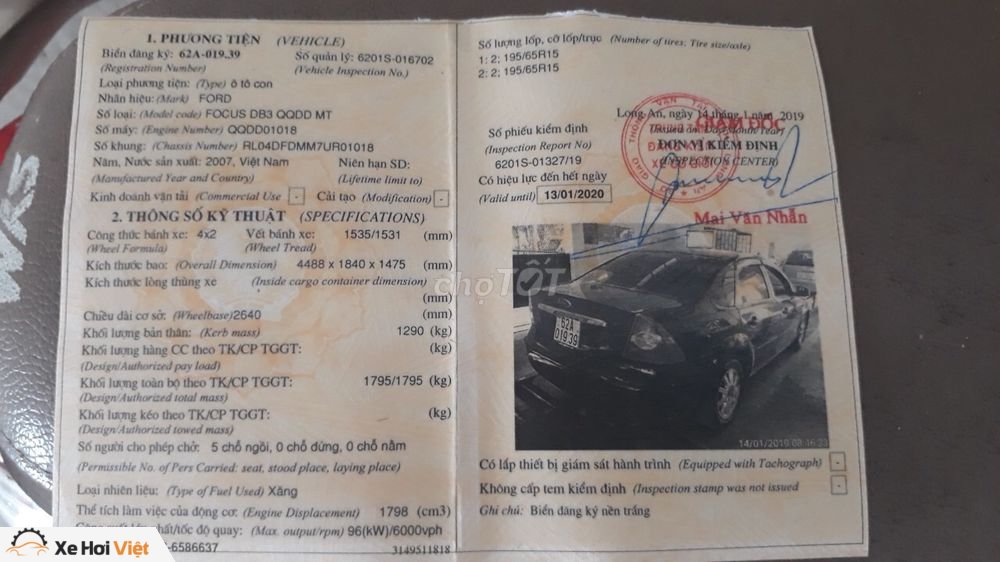 1. PHƯƠNG TIỆN (VEHICLE)
Biển đăng ký: 62A-019.39 Số quản lý: 6201S-016702
(Registration Number) (Vehicle Inspection No.)
Loại phương tiện: (Type) ô tô con
Nhãn hiệu: (Mark) FORD
Số loại: (Model code) FOCUS DB3 QQDD MT
Số máy: (Engine Number) QQDD01018
Số khung: (Chassis Number) RL04DFDMM7UR01018
Năm, Nước sản xuất: 2007, Việt Nam Niên hạn SD:
(Manufactured Year and Country) (Lifetime limit to)
Kinh doanh vận tải (Commercial Use) - Cải tạo (Modification) -
2. THÔNG SỐ KỸ THUẬT (SPECIFICATIONS)
Công thức bánh xe: 4x2 Vết bánh xe: 1535/1531 (mm)
(Wheel Formula) (Wheel Tread)
Kích thước bao: (Overall Dimension) 4488 x 1840 x 1475 (mm)
Kích thước lòng thùng xe (Inside cargo container dimension)
(mm)
Chiều dài cơ sở: (Wheelbase) 2640 (mm)
Khối lượng bản thân: (Kerb mass) 1290 (kg)
Khối lượng hàng CC theo TK/CP TGGT: (kg)
(Design/Authorized pay load)
Khối lượng toàn bộ theo TK/CP TGGT: 1795/1795 (kg)
(Design/Authorized total mass)
Khối lượng kéo theo TK/CP TGGT: (kg)
(Design/Authorized towed mass)
Số người cho phép chở: 5 chỗ ngồi, 0 chỗ đứng, 0 chỗ nằm
(Permissible No. of Pers Carried: seat, stood place, laying place)
Loại nhiên liệu: (Type of Fuel Used) Xăng
Thể tích làm việc của động cơ: (Engine Displacement) 1798 (cm3)
suất lớn nhất/tốc độ quay: (Max. output/rpm) 96(kW)/6000vph
-6586637 3149511818
Số lượng lốp, cỡ lốp/trục (Number of tires; Tire size/axle)
1: 2; 195/65R15
2: 2; 195/65R15
Long An, ngày 14 tháng 1 năm 2019
(Issued on: Day/Month/Year)
GIÁM ĐỐC
Số phiếu kiểm định ĐƠN VỊ KIỂM ĐỊNH
(Inspection Report No) (INSPECTION CENTER)
6201S-01327/19
Có hiệu lực đến hết ngày
(Valid until) 13/01/2020
Mai Văn Nhẫn
chợTỐT
62A
019.39
14/01/2019 08:46:23
Có lắp thiết bị giám sát hành trình (Equipped with Tachograph) -
Không cấp tem kiểm định (Inspection stamp was not issued -
Ghi chú: Biển đăng ký nền trắng
Xe Hơi Việt